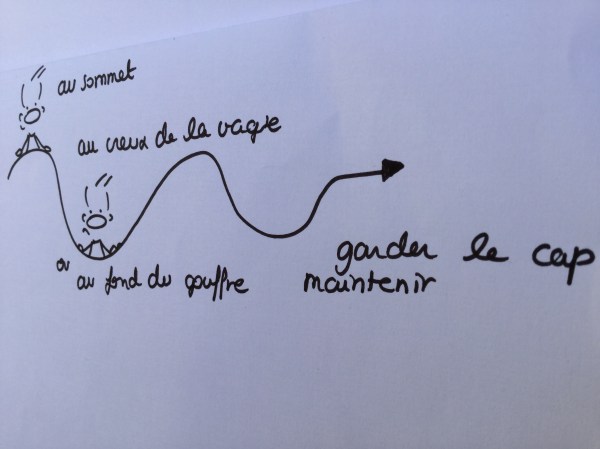 au sommet
au creux de la vague
ou
au fond du gouffre
garder le cap
maintenir